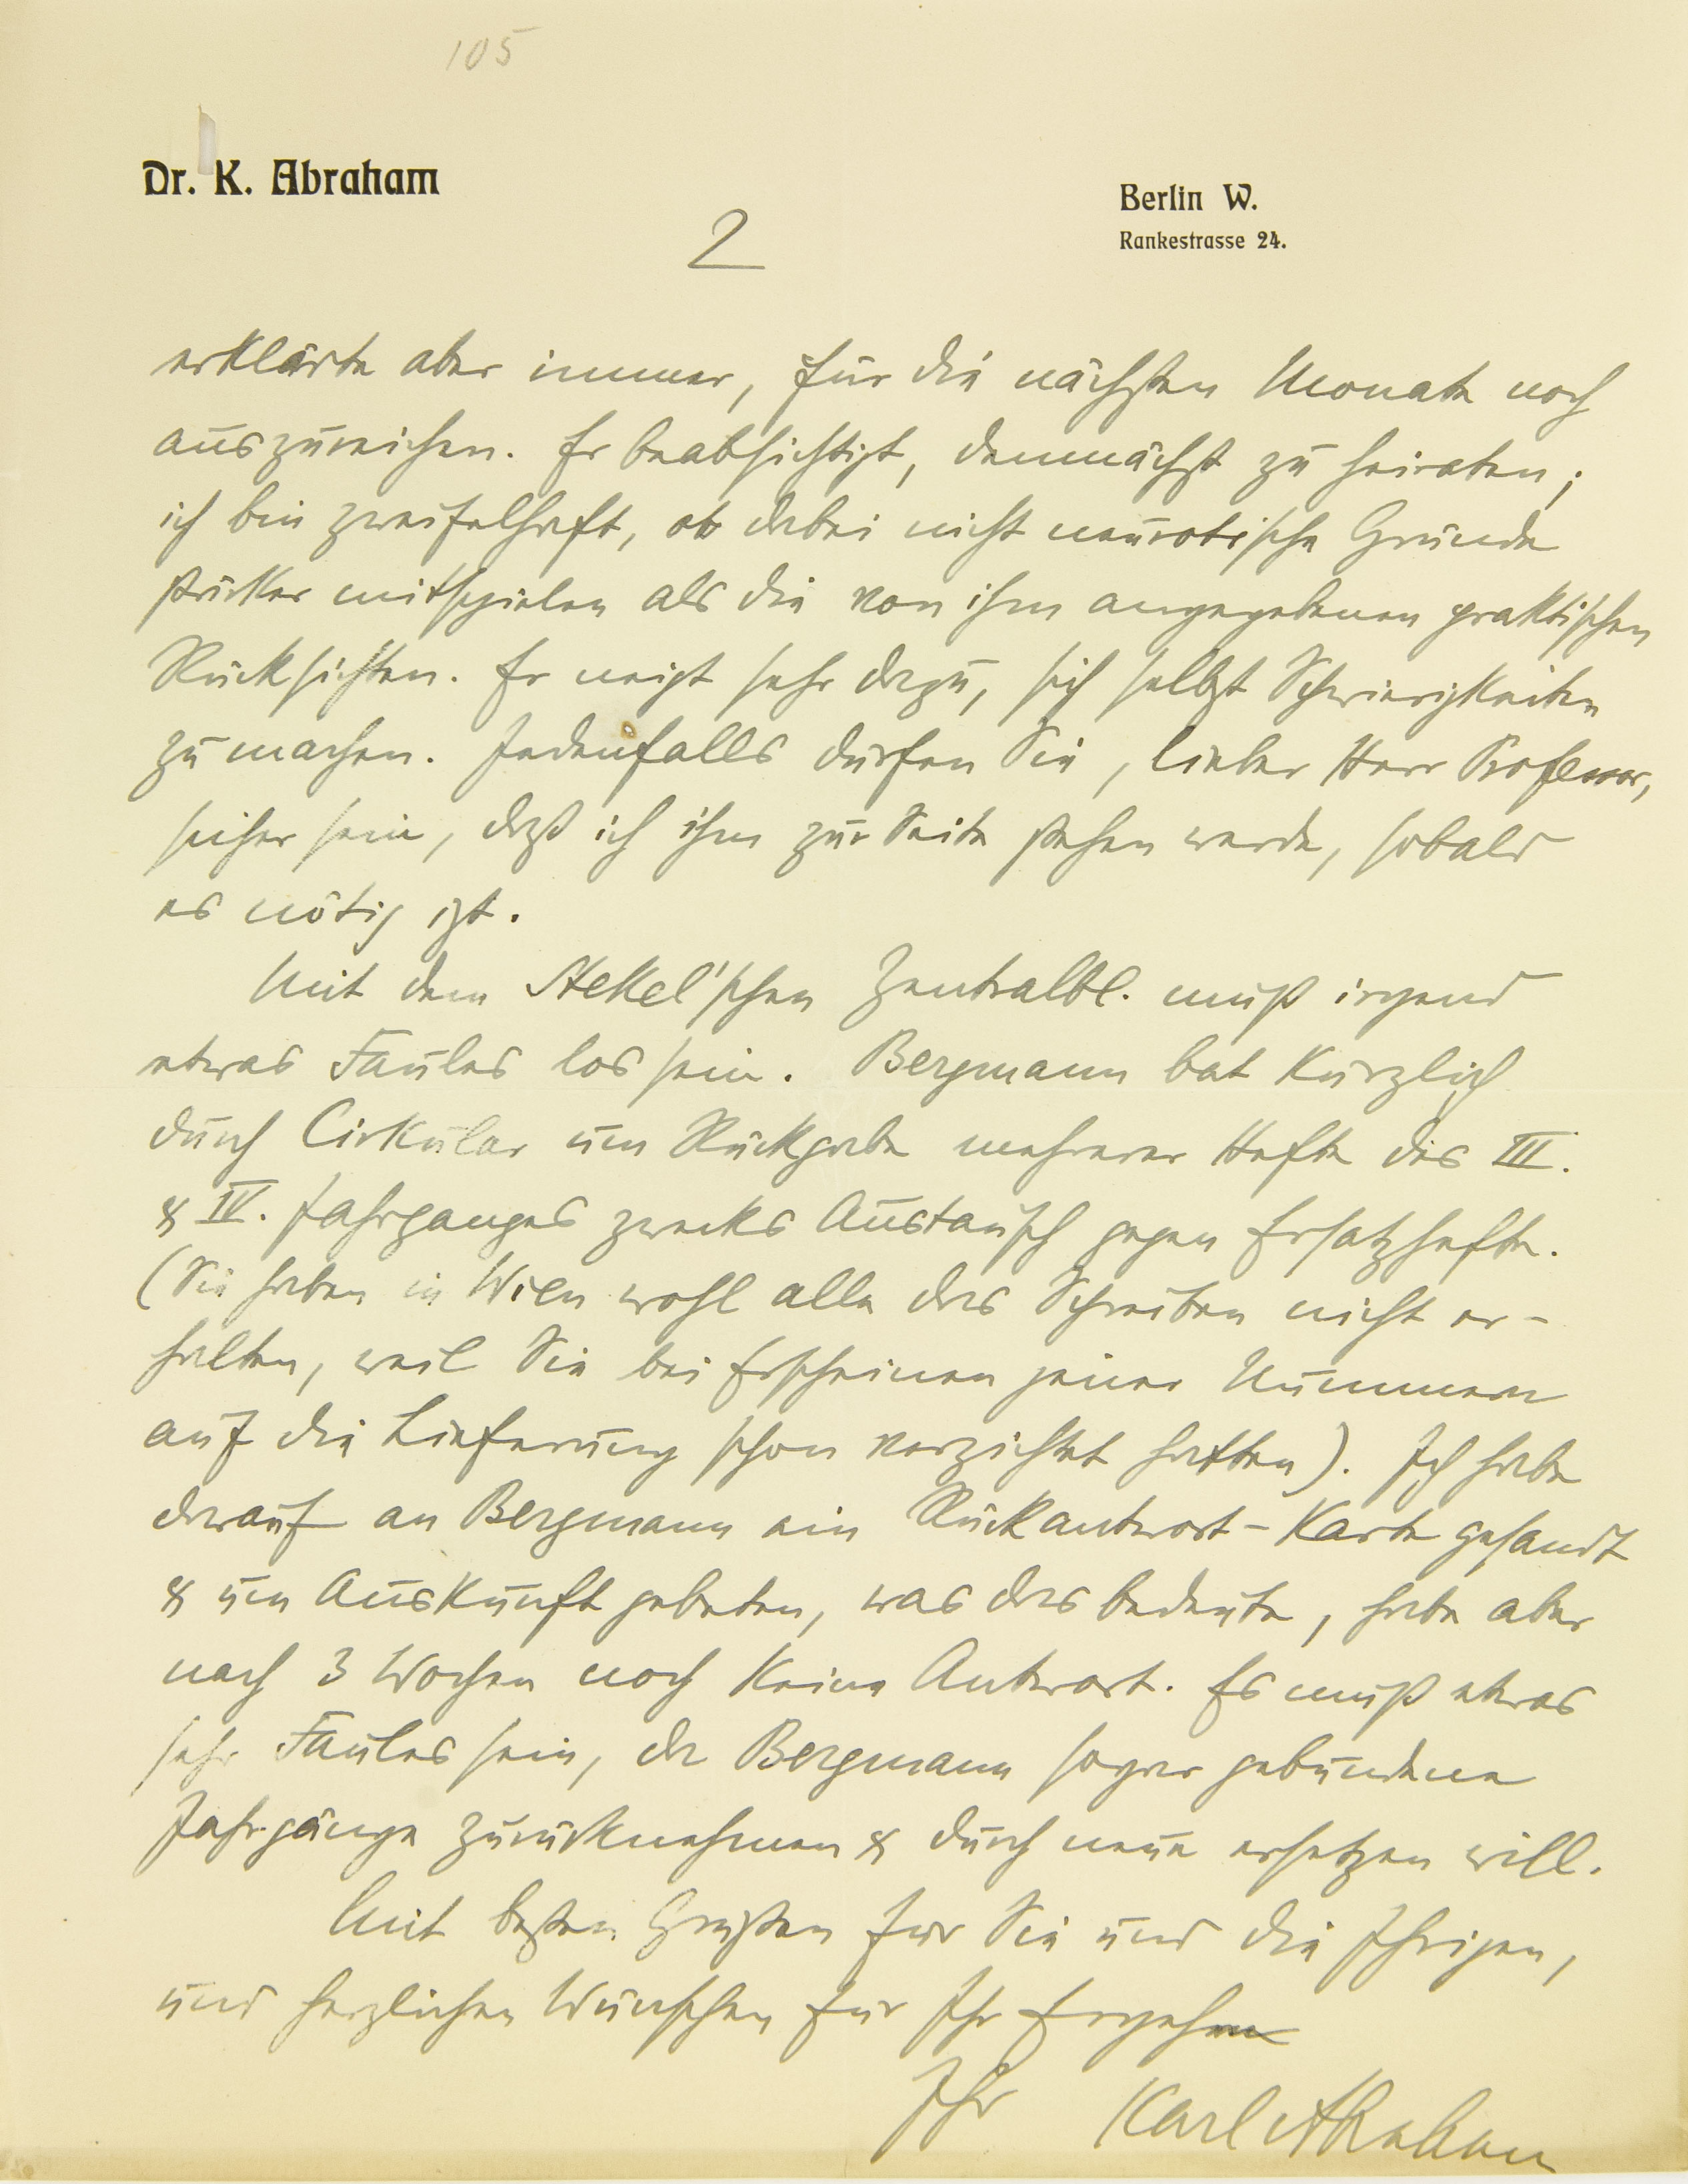 105
Dr. K. Abraham
Berlin W.
Rankestrasse 24.
2
erklärte aber immer, für die nächsten Monate noch
auszureichen. Er beabsichtigt, demnächst zu heiraten;
ich bin zweifelhaft, ob dabei nicht neurotische Gründe
stärker mitspielen als die von ihm angegebenen praktischen
Rücksichten. Er neigt sehr dazu, sich selbst Schwierigkeiten
zu machen. Jedenfalls dürfen Sie, lieber Herr Professor,
sicher sein, daß ich ihm zur Seite stehen werde, sobald
es nötig ist.
Mit dem Stekel'schen Zentralbl. muß irgend
etwas Faules los sein. Bergmann bat kürzlich
durch Cirkular um Rückgabe mehrerer Hefte des III.
& IV. Jahrganges zwecks Austausch gegen Ersatzhefte.
(Sie haben in Wien wohl alle das Schreiben nicht er-
halten, weil Sie bei Erscheinen jener Nummern
auf die Lieferung schon verzichtet hatten). Ich habe
darauf an Bergmann ein Rückantwort-Karte gesandt
& um Auskunft gebeten, was das bedeute, habe aber
nach 3 Wochen noch keine Antwort. Es muß etwas
sehr Faules sein, da Bergmann sogar gebundene
Jahrgänge zurücknehmen & durch neue ersetzen will.
Mit besten Grüßen für Sie und die Ihrigen,
und herzlichen Wünschen für Ihr Ergehen
Ihr Karl Abraham